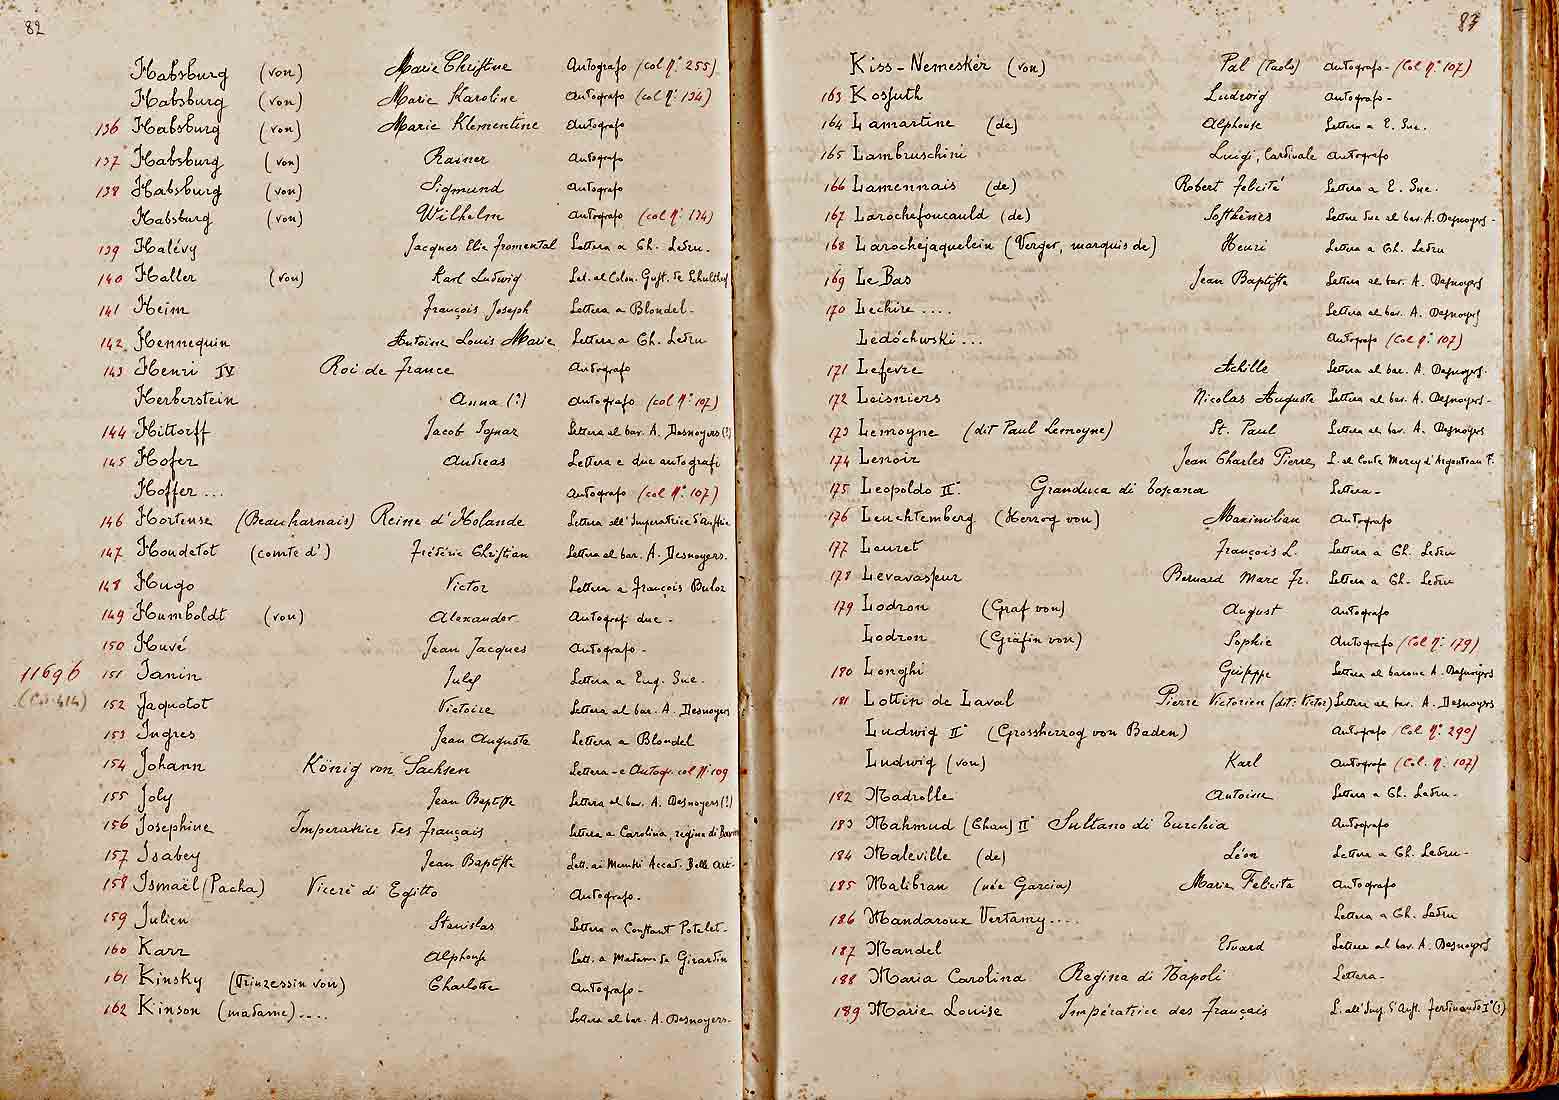 82
Habsburg (von) Marie Christine Autografo (col N.° 255)
Habsburg (von) Marie Karoline Autografo (col N.° 134)
136 Habsburg (von) Marie Klementine Autografo
137 Habsburg (von) Rainer Autografo
138 Habsburg (von) Sigmund Autografo
Habsburg (von) Wilhelm Autografo (col N.° 134)
139 Halévy Jacques Elie Fromental Lettera a Ch. Ledru.
140 Haller (von) Karl Ludwig Let. al Colon. Gust. de
141 Heim François Joseph Lettera a Blondel.
142 Hennequin Antoine Louis Marie Lettera a Ch. Ledru
143 Henri IV Roi de France Autografo
Herberstein Anna (?) Autografo (col N.° 107)
144 Hittorff Jacob Ignaz Lettera al bar. A. Desnoyers (?)
145 Hofer Andreas Lettera e due autografi
Hoffer ... Autografo (col N.° 107)
146 Hortense (Beauharnais) Reine d'Holande Lettera all'Imperatrice d'Austria
147 Houdetot (comte d') Frédéric Christian Lettera al bar. A. Desnoyers.
148 Hugo Victor Lettera a François Buloz
149 Humboldt (von) Alexander Autografi due.
150 Huvé Jean Jacques Autografo.
11696
151 Janin Jules Lettera a Eug. Sue.
152 Jaquotot Victoire Lettera al bar. A. Desnoyers
153 Ingres Jean Auguste Lettera a Blondel
154 Johann König von Sachsen Lettera e Autogr. col N.° 109
155 Joly Jean Baptiste Lettera al bar. A. Desnoyers (?)
156 Josephine Imperatrice des Français Lettera a Carolina, regina di
157 Isabey Jean Baptiste Lett. ai Membri Accad. Belle Art.
158 Ismaël (Pacha) Vicerè di Egitto Autografo.
159 Julien Stanislas Lettera a Constant Potelet.
160 Karr Alphonse Lett. a Madame de Girardin
161 Kinsky (Prinzessin von) Charlotte Autografo.
162 Kinson (madame).... Lettera al bar. A. Desnoyers.
83
Kiss-Nemeskér (von) Pal (Paolo) Autografo. (Col N.° 107)
163 Kossuth Ludwig Autografo.
164 Lamartine (de) Alphonse Lettera a E. Sue.
165 Lambruschini Luigi, Cardinale Autografo
166 Lamennais (de) Robert Felicité Lettera a E. Sue.
167 Larochefoucauld (de) Sosthènes Lettere due al bar. A. Desnoyers.
168 Larochejaquelein (Verger, marquis de) Henri Lettera a Ch. Ledru
169 Le Bas Jean Baptiste Lettera al bar. A. Desnoyers
170 Lechire .... Lettera al bar. A. Desnoyers
Ledóchwski ... Autografo (Col N.° 107)
171 Lefevre Achille Lettera al bar. A. Desnoyers.
172 Leisniers Nicolas Auguste Lettera al bar. A. Desnoyers.
173 Lemoyne (dit Paul Lemoyne) St. Paul Lettera al bar. A. Desnoyers
174 Lenoir Jean Charles Pierre L. al Conte Mercy d'Argenteau F.
175 Leopoldo II° Granduca di Toscana Lettera.
176 Leuchtemberg (Herzog von) Maximilian Autografo
177 Leuret François L. Lettera a Ch. Ledru
178 Levavasseur Bernard Marc Fr. Lettera a Ch. Ledru
179 Lodron (Graf von) August Autografo
Lodron (Gräfin von) Sophie Autografo (Col N.° 179)
180 Longhi Giuseppe Lettera al barone A. Desnoyers
181 Lottin de Laval Pierre Victorien (dit: Victor) Lettere al bar. A. Desnoyers
Ludwig II° (Grossherzog von Baden) Autografo (Col N.° 290)
Ludwig (von) Karl Autografo (Col. N.° 107)
182 Madrolle Antoine Lettera a Ch. Ledru.
183 Mahmud (Chan) II° Sultano di Turchia Autografo
184 Maleville (de) Léon Lettera a Ch. Ledru.
185 Malibran (née Garcia) Marie Felicita Autografo
186 Mandaroux Vertamy.... Lettera a Ch. Ledru
187 Mandel Eduard Lettera al bar. A. Desnoyers
188 Maria Carolina Regina di Napoli Lettera.
189 Marie Louise Impératrice des Français L. all'Imp. d'Aust. Ferdinando I° (?)